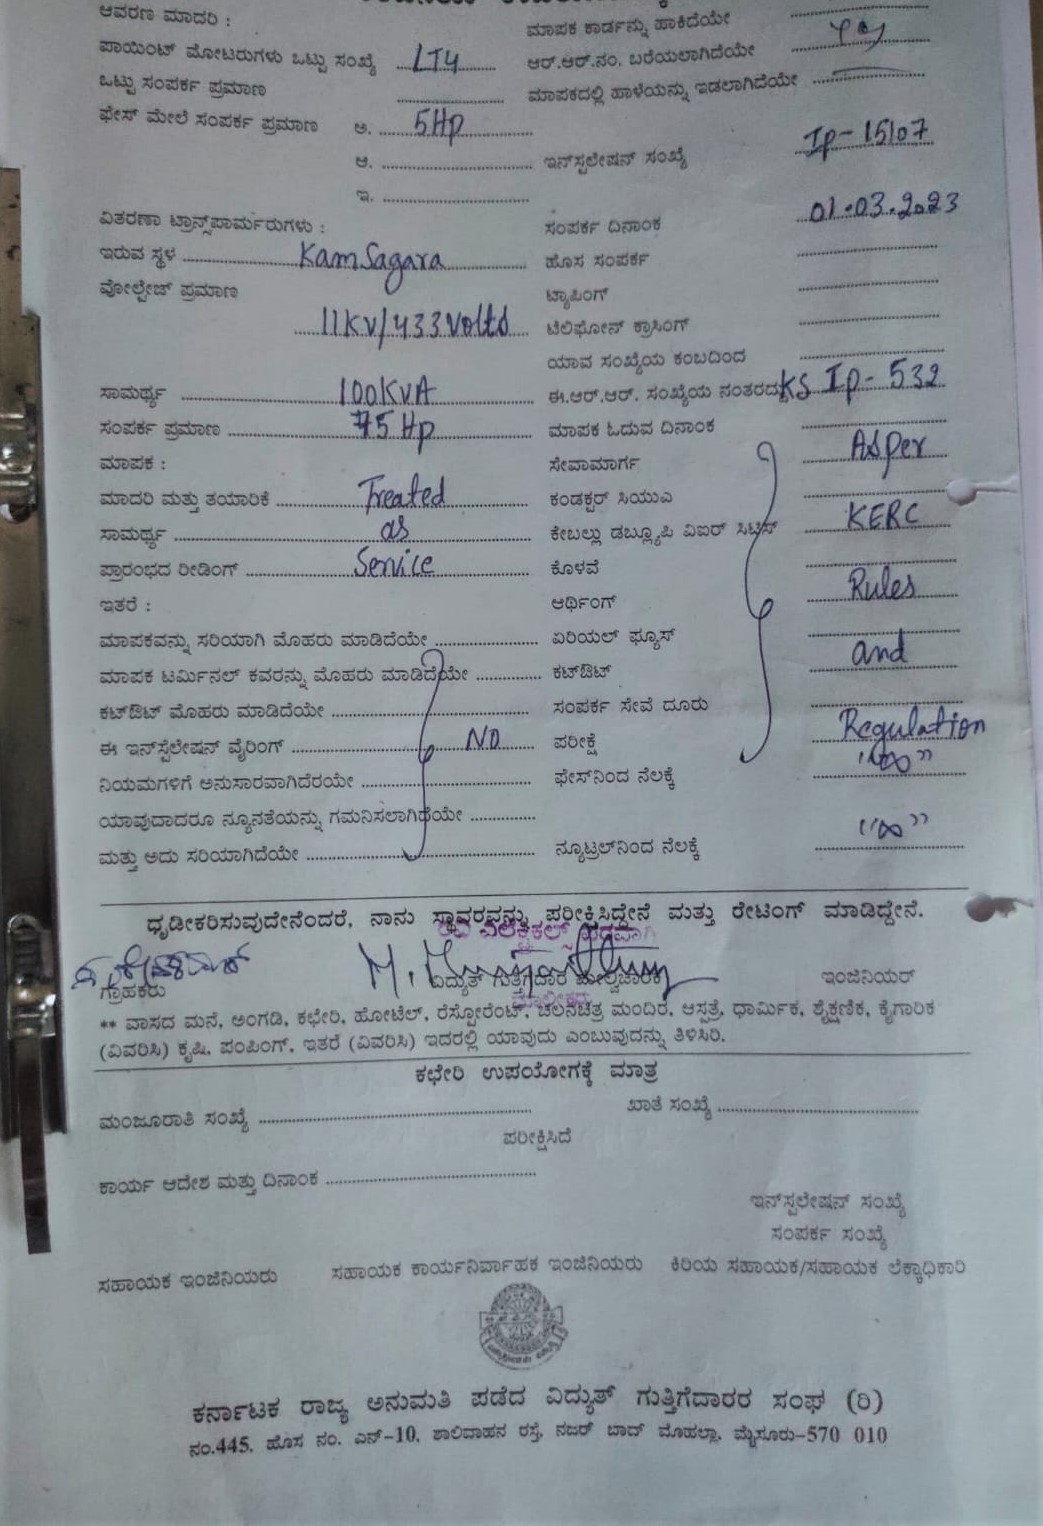 ಆವರಣ ಮಾದರಿ :
ಮಾಪಕ ಕಾರ್ಡನ್ನು ಹಾಕಿದೆಯೇ
ಪಾಯಿಂಟ್ ಮೋಟರುಗಳು ಒಟ್ಟು ಸಂಖ್ಯೆ LT4 ಆರ್.ಆರ್.ನಂ. ಬರೆಯಲಾಗಿದೆಯೇ
ಒಟ್ಟು ಸಂಪರ್ಕ ಪ್ರಮಾಣ ಮಾಪಕದಲ್ಲಿ ಹಾಳೆಯನ್ನು ಇಡಲಾಗಿದೆಯೇ
ಫೇಸ್ ಮೇಲೆ ಸಂಪರ್ಕ ಪ್ರಮಾಣ ಅ. 5Hp
ಆ. ಇನ್‌ಸ್ಟಲೇಷನ್ ಸಂಖ್ಯೆ Ip-15107
ಇ.
ವಿತರಣಾ ಟ್ರಾನ್ಸ್‌ಪಾರ್ಮರುಗಳು : ಸಂಪರ್ಕ ದಿನಾಂಕ 01.03.2023
ಇರುವ ಸ್ಥಳ Kamsagara ಹೊಸ ಸಂಪರ್ಕ
ವೋಲ್ಟೇಜ್ ಪ್ರಮಾಣ ಟ್ಯಾಪಿಂಗ್
11KV/433Volts ಟೆಲಿಫೋನ್ ಕ್ರಾಸಿಂಗ್
ಯಾವ ಸಂಖ್ಯೆಯ ಕಂಬದಿಂದ
ಸಾಮರ್ಥ್ಯ 100KVA ಈ.ಆರ್.ಆರ್. ಸಂಖ್ಯೆಯ ನಂತರದ್ದು KS Ip-532
ಸಂಪರ್ಕ ಪ್ರಮಾಣ 75 Hp ಮಾಪಕ ಓದುವ ದಿನಾಂಕ
ಮಾಪಕ : ಸೇವಾಮಾರ್ಗ Asper
ಮಾದರಿ ಮತ್ತು ತಯಾರಿಕೆ Treated ಕಂಡಕ್ಟರ್ ಸಿಯುಎ
ಸಾಮರ್ಥ್ಯ as ಕೇಬಲ್ಲು ಡಬ್ಲ್ಯೂಪಿ ವಿಐರ್ KERC
ಪ್ರಾರಂಭದ ರೀಡಿಂಗ್ Service ಕೊಳವೆ
ಇತರೆ : ಆರ್ಥಿಂಗ್ Rules
ಮಾಪಕವನ್ನು ಸರಿಯಾಗಿ ಮೊಹರು ಮಾಡಿದೆಯೇ ಏರಿಯಲ್ ಫ್ಯೂಸ್
ಮಾಪಕ ಟರ್ಮಿನಲ್ ಕವರನ್ನು ಮೊಹರು ಮಾಡಿದೆಯೇ ಕಟ್‌ಔಟ್ and
ಕಟ್‌ಔಟ್ ಮೊಹರು ಮಾಡಿದೆಯೇ ಸಂಪರ್ಕ ಸೇವೆ ದೂರು
ಈ ಇನ್‌ಸ್ಟಲೇಷನ್ ವೈರಿಂಗ್ NO ಪರೀಕ್ಷೆ Regulation
ನಿಯಮಗಳಿಗೆ ಅನುಸಾರವಾಗಿದೆರಯೇ ಫೇಸ್‌ನಿಂದ ನೆಲಕ್ಕೆ "∞"
ಯಾವುದಾದರೂ ನ್ಯೂನತೆಯನ್ನು ಗಮನಿಸಲಾಗಿದೆಯೇ
ಮತ್ತು ಅದು ಸರಿಯಾಗಿದೆಯೇ ನ್ಯೂಟ್ರಲ್‌ನಿಂದ ನೆಲಕ್ಕೆ "∞"
ಧೃಡೀಕರಿಸುವುದೇನೆಂದರೆ, ನಾನು ಸ್ಥಾವರವನ್ನು ಪರೀಕ್ಷಿಸಿದ್ದೇನೆ ಮತ್ತು ರೇಟಿಂಗ್ ಮಾಡಿದ್ದೇನೆ.
ಗ್ರಾಹಕರು ವಿದ್ಯುತ್ ಗುತ್ತಿಗೆದಾರ ಮೇಲ್ವಿಚಾರಕ ಇಂಜಿನಿಯರ್
** ವಾಸದ ಮನೆ, ಅಂಗಡಿ, ಕಛೇರಿ, ಹೋಟೆಲ್, ರೆಸ್ಟೋರೆಂಟ್, ಚಲನಚಿತ್ರ ಮಂದಿರ, ಆಸ್ಪತ್ರೆ, ಧಾರ್ಮಿಕ, ಶೈಕ್ಷಣಿಕ, ಕೈಗಾರಿಕ
(ವಿವರಿಸಿ) ಕೃಷಿ, ಪಂಪಿಂಗ್, ಇತರೆ (ವಿವರಿಸಿ) ಇದರಲ್ಲಿ ಯಾವುದು ಎಂಬುವುದನ್ನು ತಿಳಿಸಿರಿ.
ಕಛೇರಿ ಉಪಯೋಗಕ್ಕೆ ಮಾತ್ರ
ಮಂಜೂರಾತಿ ಸಂಖ್ಯೆ ಖಾತೆ ಸಂಖ್ಯೆ
ಪರೀಕ್ಷಿಸಿದೆ
ಕಾರ್ಯ ಆದೇಶ ಮತ್ತು ದಿನಾಂಕ
ಇನ್‌ಸ್ಟಲೇಷನ್ ಸಂಖ್ಯೆ
ಸಂಪರ್ಕ ಸಂಖ್ಯೆ
ಸಹಾಯಕ ಇಂಜಿನಿಯರು ಸಹಾಯಕ ಕಾರ್ಯನಿರ್ವಾಹಕ ಇಂಜಿನಿಯರು ಕಿರಿಯ ಸಹಾಯಕ/ಸಹಾಯಕ ಲೆಕ್ಕಾಧಿಕಾರಿ
ಕರ್ನಾಟಕ ರಾಜ್ಯ ಅನುಮತಿ ಪಡೆದ ವಿದ್ಯುತ್ ಗುತ್ತಿಗೆದಾರರ ಸಂಘ (ರಿ)
ನಂ.445, ಹೊಸ ನಂ. ಎನ್-10, ಶಾಲಿವಾಹನ ರಸ್ತೆ, ನಜರ್ ಬಾದ್ ಮೊಹಲ್ಲಾ, ಮೈಸೂರು-570 010